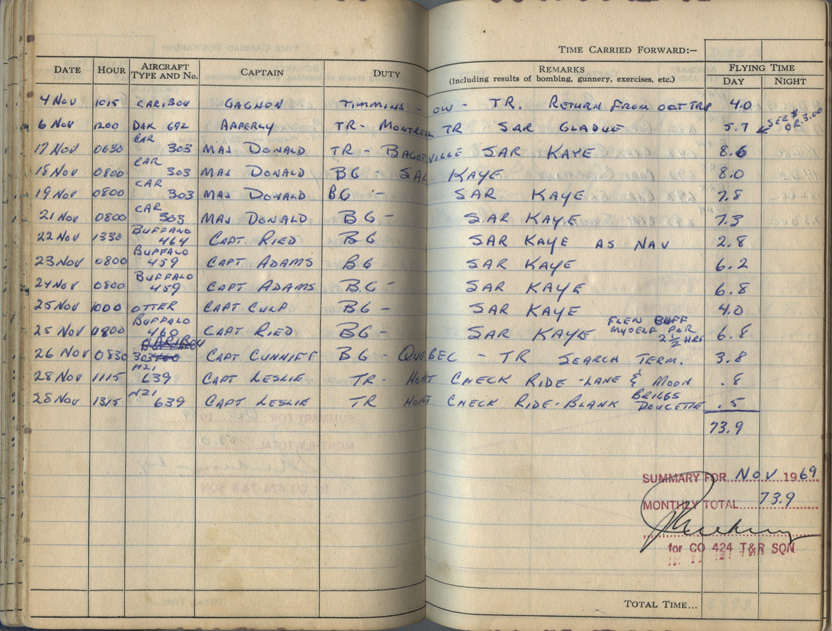 TIME CARRIED FORWARD:–
DATE HOUR AIRCRAFT TYPE AND No. CAPTAIN DUTY REMARKS (Including results of bombing, gunnery, exercises, etc.) FLYING TIME DAY NIGHT
4 NOV 1015 CARIBOU GAGNON TIMMINS - OW - TR. RETURN FROM OCT TRIP 4.0
6 NOV 1200 DAK 692 APPERLY TR - MONTREAL TR SAR GLADUE 5.7 SEE # OR 3.00
17 NOV 0630 CAR 303 MAJ DONALD TR - BAGOTVILLE SAR KAYE 8.6
18 NOV 0800 CAR 303 MAJ DONALD BG - SAR KAYE 8.0
19 NOV 0800 CAR 303 MAJ DONALD BG - SAR KAYE 7.8
21 NOV 0800 CAR 303 MAJ DONALD BG - SAR KAYE 7.3
22 NOV 1330 BUFFALO 464 CAPT RIED BG SAR KAYE AS NAV 2.8
23 NOV 0800 BUFFALO 459 CAPT ADAMS BG SAR KAYE 6.2
24 NOV 0800 BUFFALO 459 CAPT ADAMS BG - SAR KAYE 6.8
25 NOV 1000 OTTER CAPT CULP BG - SAR KAYE 4.0
25 NOV 0800 BUFFALO 460 CAPT RIED BG - SAR KAYE FLEW BUFF MYSELF FOR 2½ HRS 6.8
26 NOV 0830 CARIBOU 303 CAPT CUNNIFF BG - QUEBEC - TR SEARCH TERM. 3.8
28 NOV 1115 H21 639 CAPT LESLIE TR - HOIST CHECK RIDE - LANE & MOON .8
28 NOV 1315 H21 639 CAPT LESLIE TR HOIST CHECK RIDE - BLANK BRIGGS DOUCETTE .5
73.9
SUMMARY FOR NOV 1969
MONTHLY TOTAL 73.9
for CO 424 T&R SQN
TOTAL TIME...